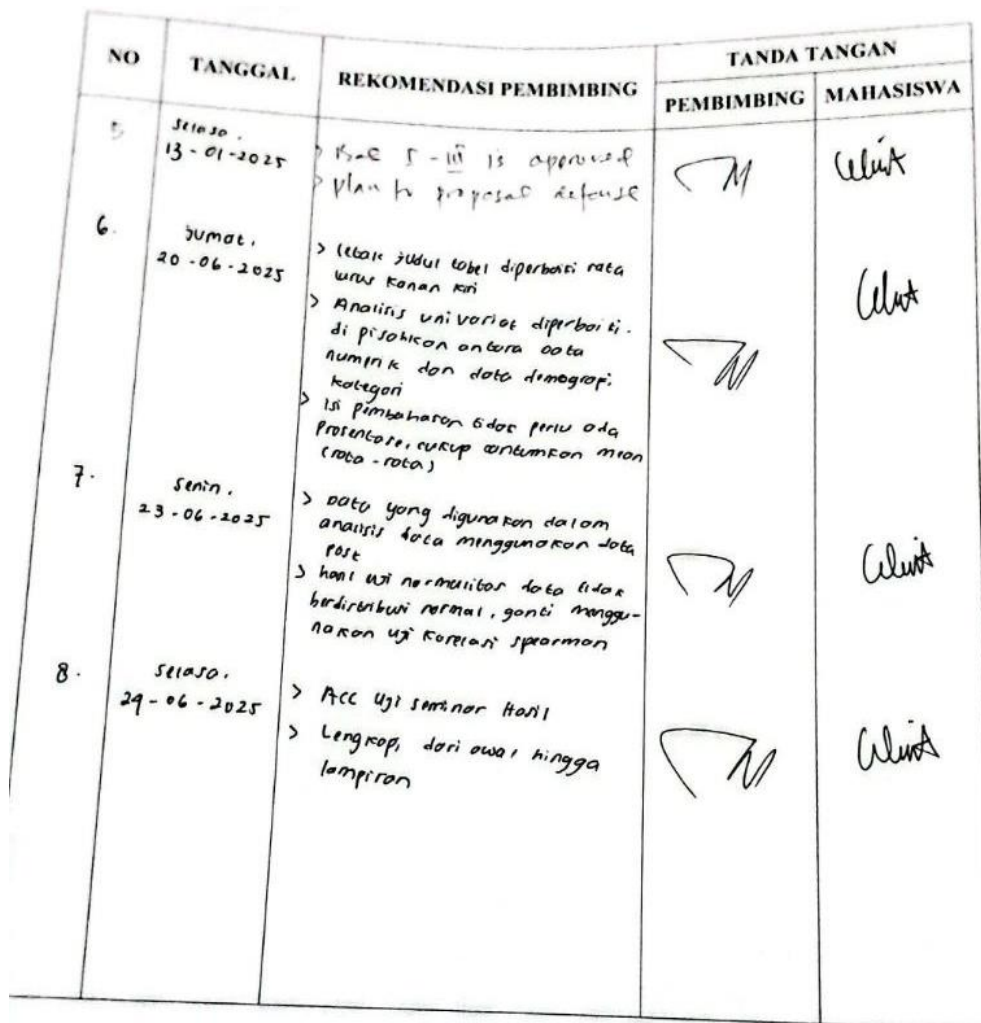 NO TANGGAL REKOMENDASI PEMBIMBING TANDA TANGAN
PEMBIMBING MAHASISWA
5 Selasa.
13-01-2025
> Bab I - III is approved
> plan to proposal defense
6. Jumat.
20-06-2025
> letak judul tabel diperbaiki rata
lurus kanan kiri
> Analisis univariat diperbaiki.
di pisahkan antara data
numerik dan data demografi.
kategori
> Isi pembahasan tidak perlu ada
prosentase, cukup cantumkan mean
(rata-rata)
7. Senin.
23-06-2025
> Data yang digunakan dalam
analisis data menggunakan data
post
> hasil uji normalitas data tidak
berdistribusi normal, ganti menggu-
nakan uji korelasi spearman
8. Selasa.
24-06-2025
> ACC Uji seminar Hasil
> Lengkapi, dari awal hingga
lampiran